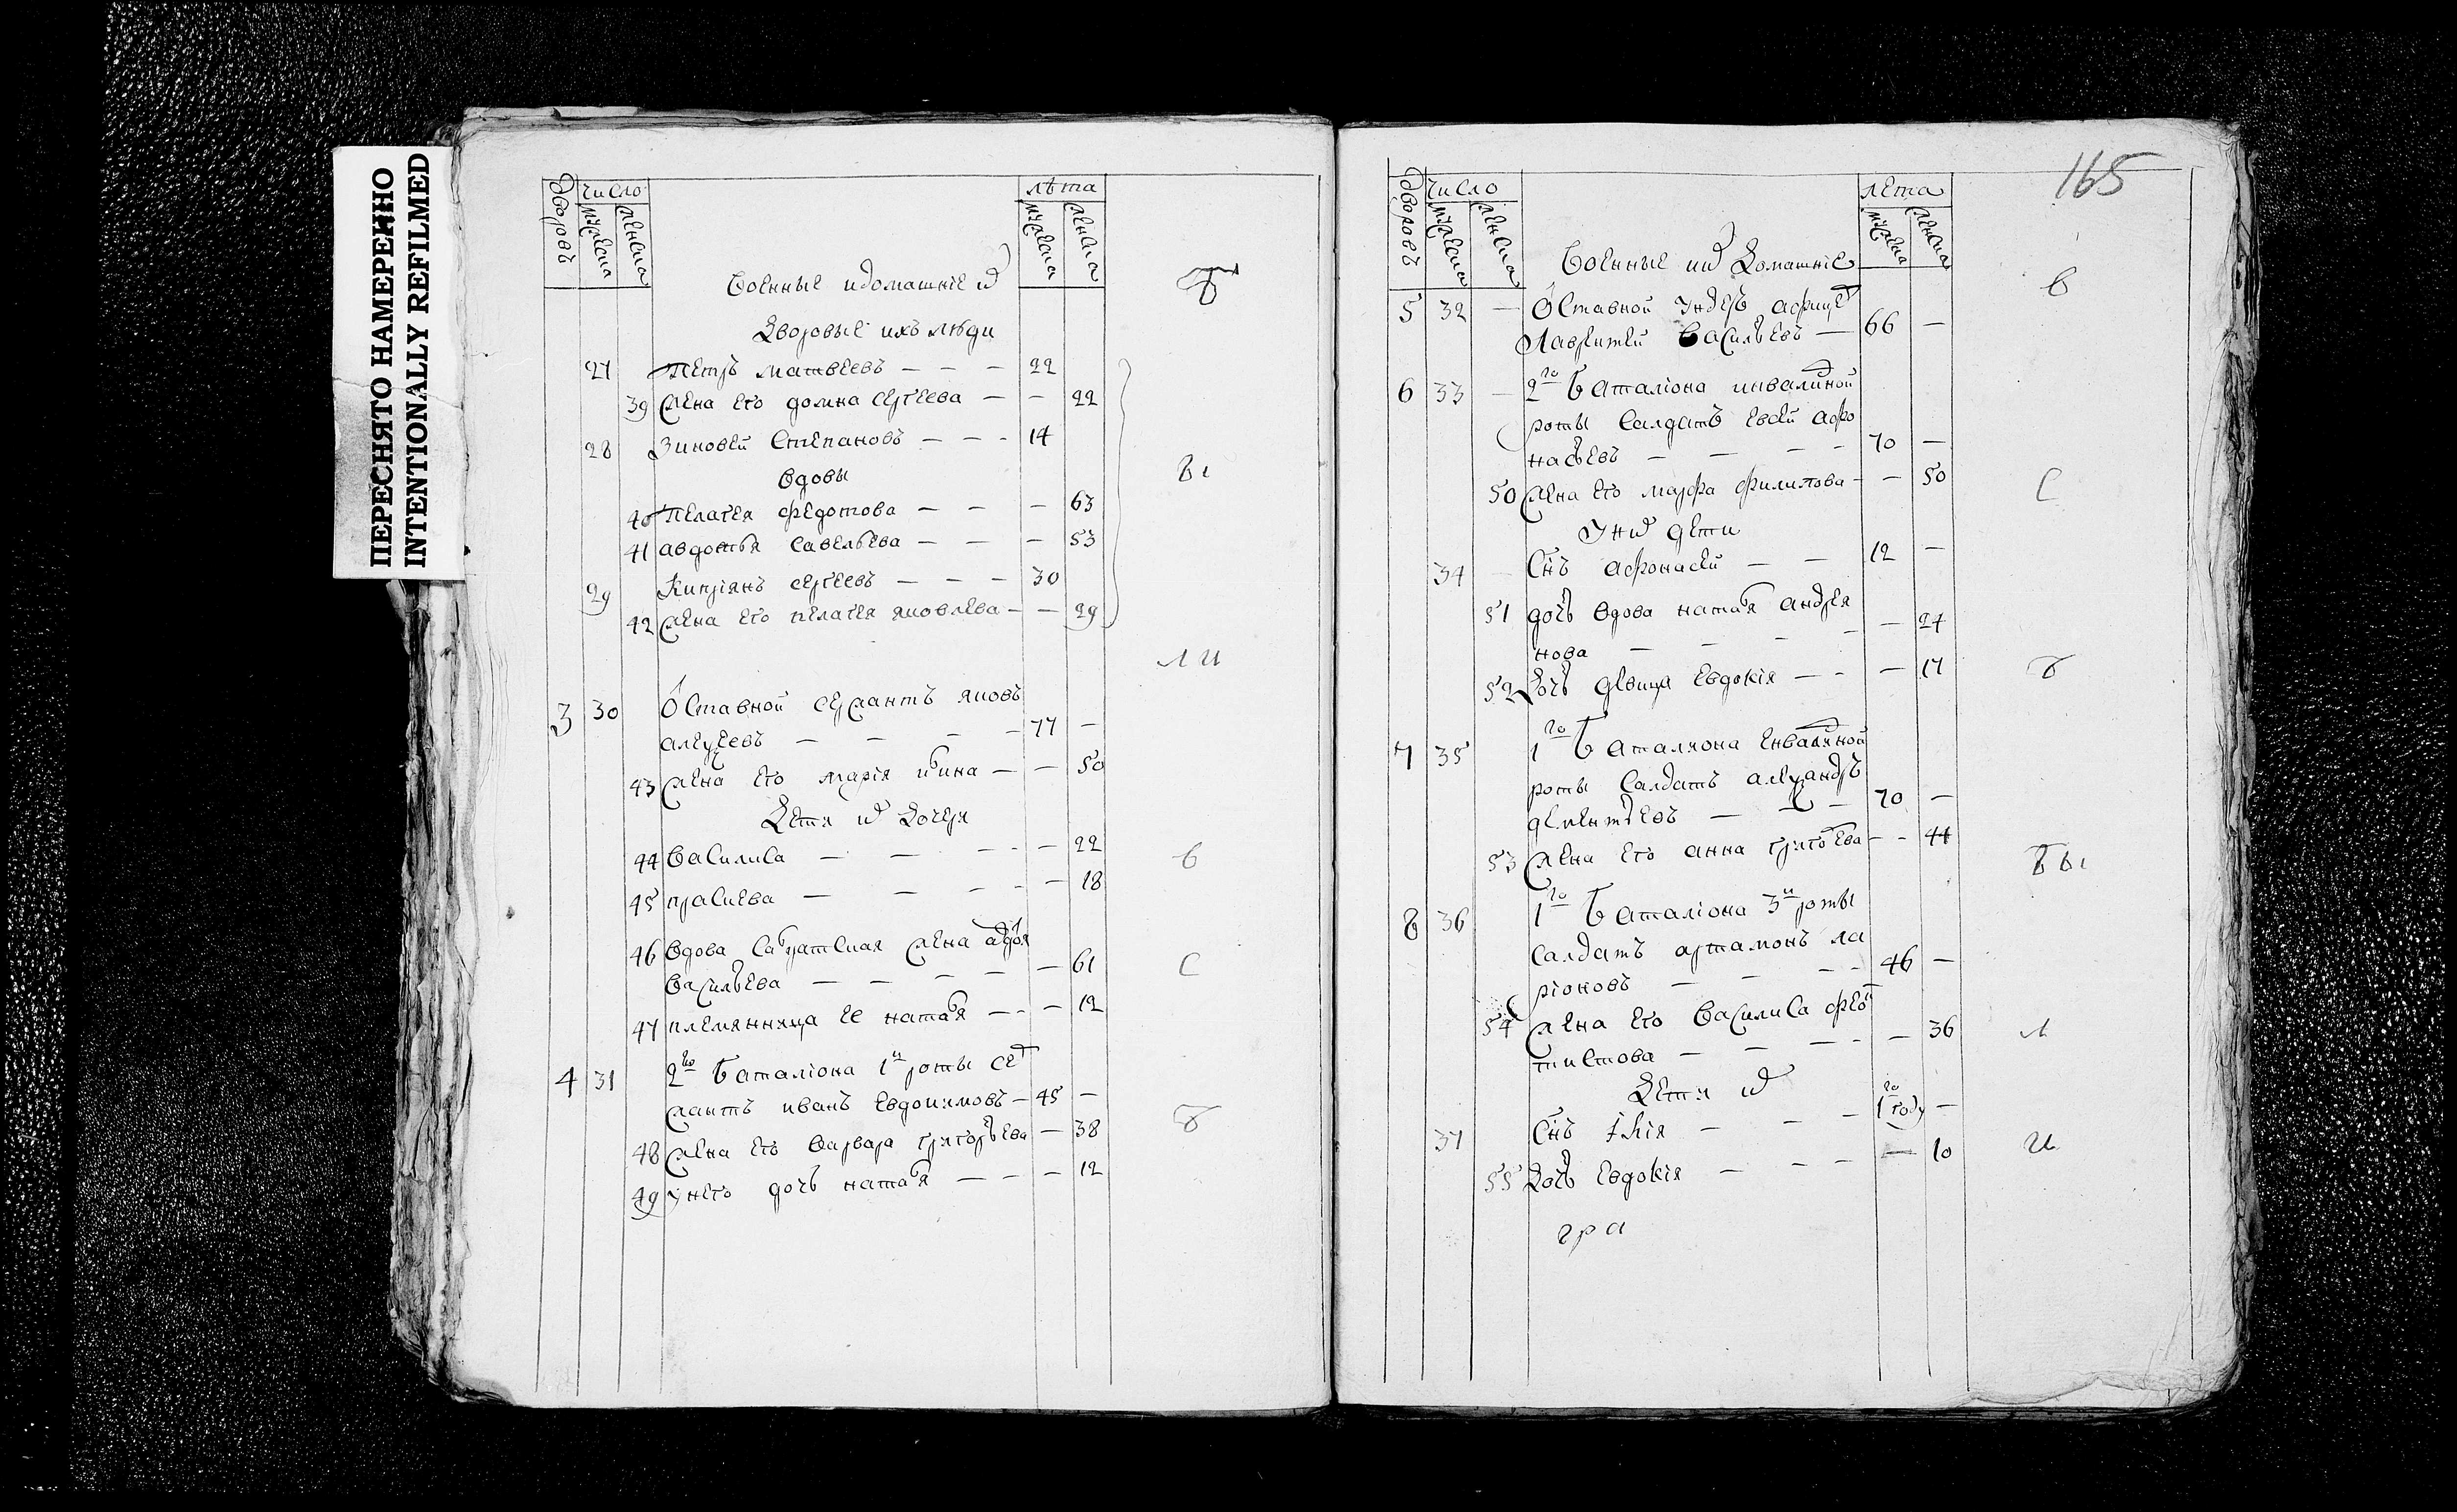 ПЕРЕСНЯТО НАМЕРЕННО
INTENTIONALLY REFILMED
дворовъ число лѣта
мужеска женска мужеска женска
Военные идомашние их
Дворовые ихъ люди
27 Петръ матвеевъ — — — 22
39 жена его домна сергеева — — 22
28 Зиновей Степановъ — — - 14
вдовы
40 Пелагея федотова — — — 63
41 авдотья савельева — — — 53
29 Киприянъ сергеевъ — — — 30
42 жена его пелагея яковлева — — 29
3 30 Отставной сержантъ яковъ
алеѯеевъ — — — — 77 —
43 жена его мария ильина — — 50
Дети их Дочеря
44 Василиса — — — - — 22
45 прасковья — — — - — 18
46 вдова салдатская жена авдотья
васильева — — — — — 61
47 племянница ее наталья — - — 12
4 31 2го баталиона 1и роты сер
жантъ иванъ Евдокимовъ — 45 —
48 жена его варвара григорьева — 38
49 унего дочь наталья — — — 12
были
в
с
б
165
дворовъ число лета
мужеска женска мужеска женска
Военные и их Домашние
5 32 — Отставной ундеръ афицер
Лаврентей Васильевъ — 66 —
6 33 — 2го Баталиона инвалидной
роты салдатъ Евсей афо
насьевъ — — — - 70 —
50 жена его марфа филипова - — 50
У них дети
34 — сынъ афонасей — — 12 —
51 дочь вдова наталья андрея
нова — — - — — 27
52 Дочь девица Евдокия — - — 17
7 35 1го Баталиона Енвалидной
роты салдатъ алеѯандръ
дементьевъ — — — 70 —
53 жена его анна григорьева — - 44
8 36 1го Баталиона 3и роты
салдатъ артамонъ ла
рионовъ — — — - 46 —
54 жена его василиса фео
тистова — — — - — 36
Дети их
37 сынъ илья — — — 1го году —
55 Дочь Евдокия — — — — 10
гра
в
с
б
бы
л
и